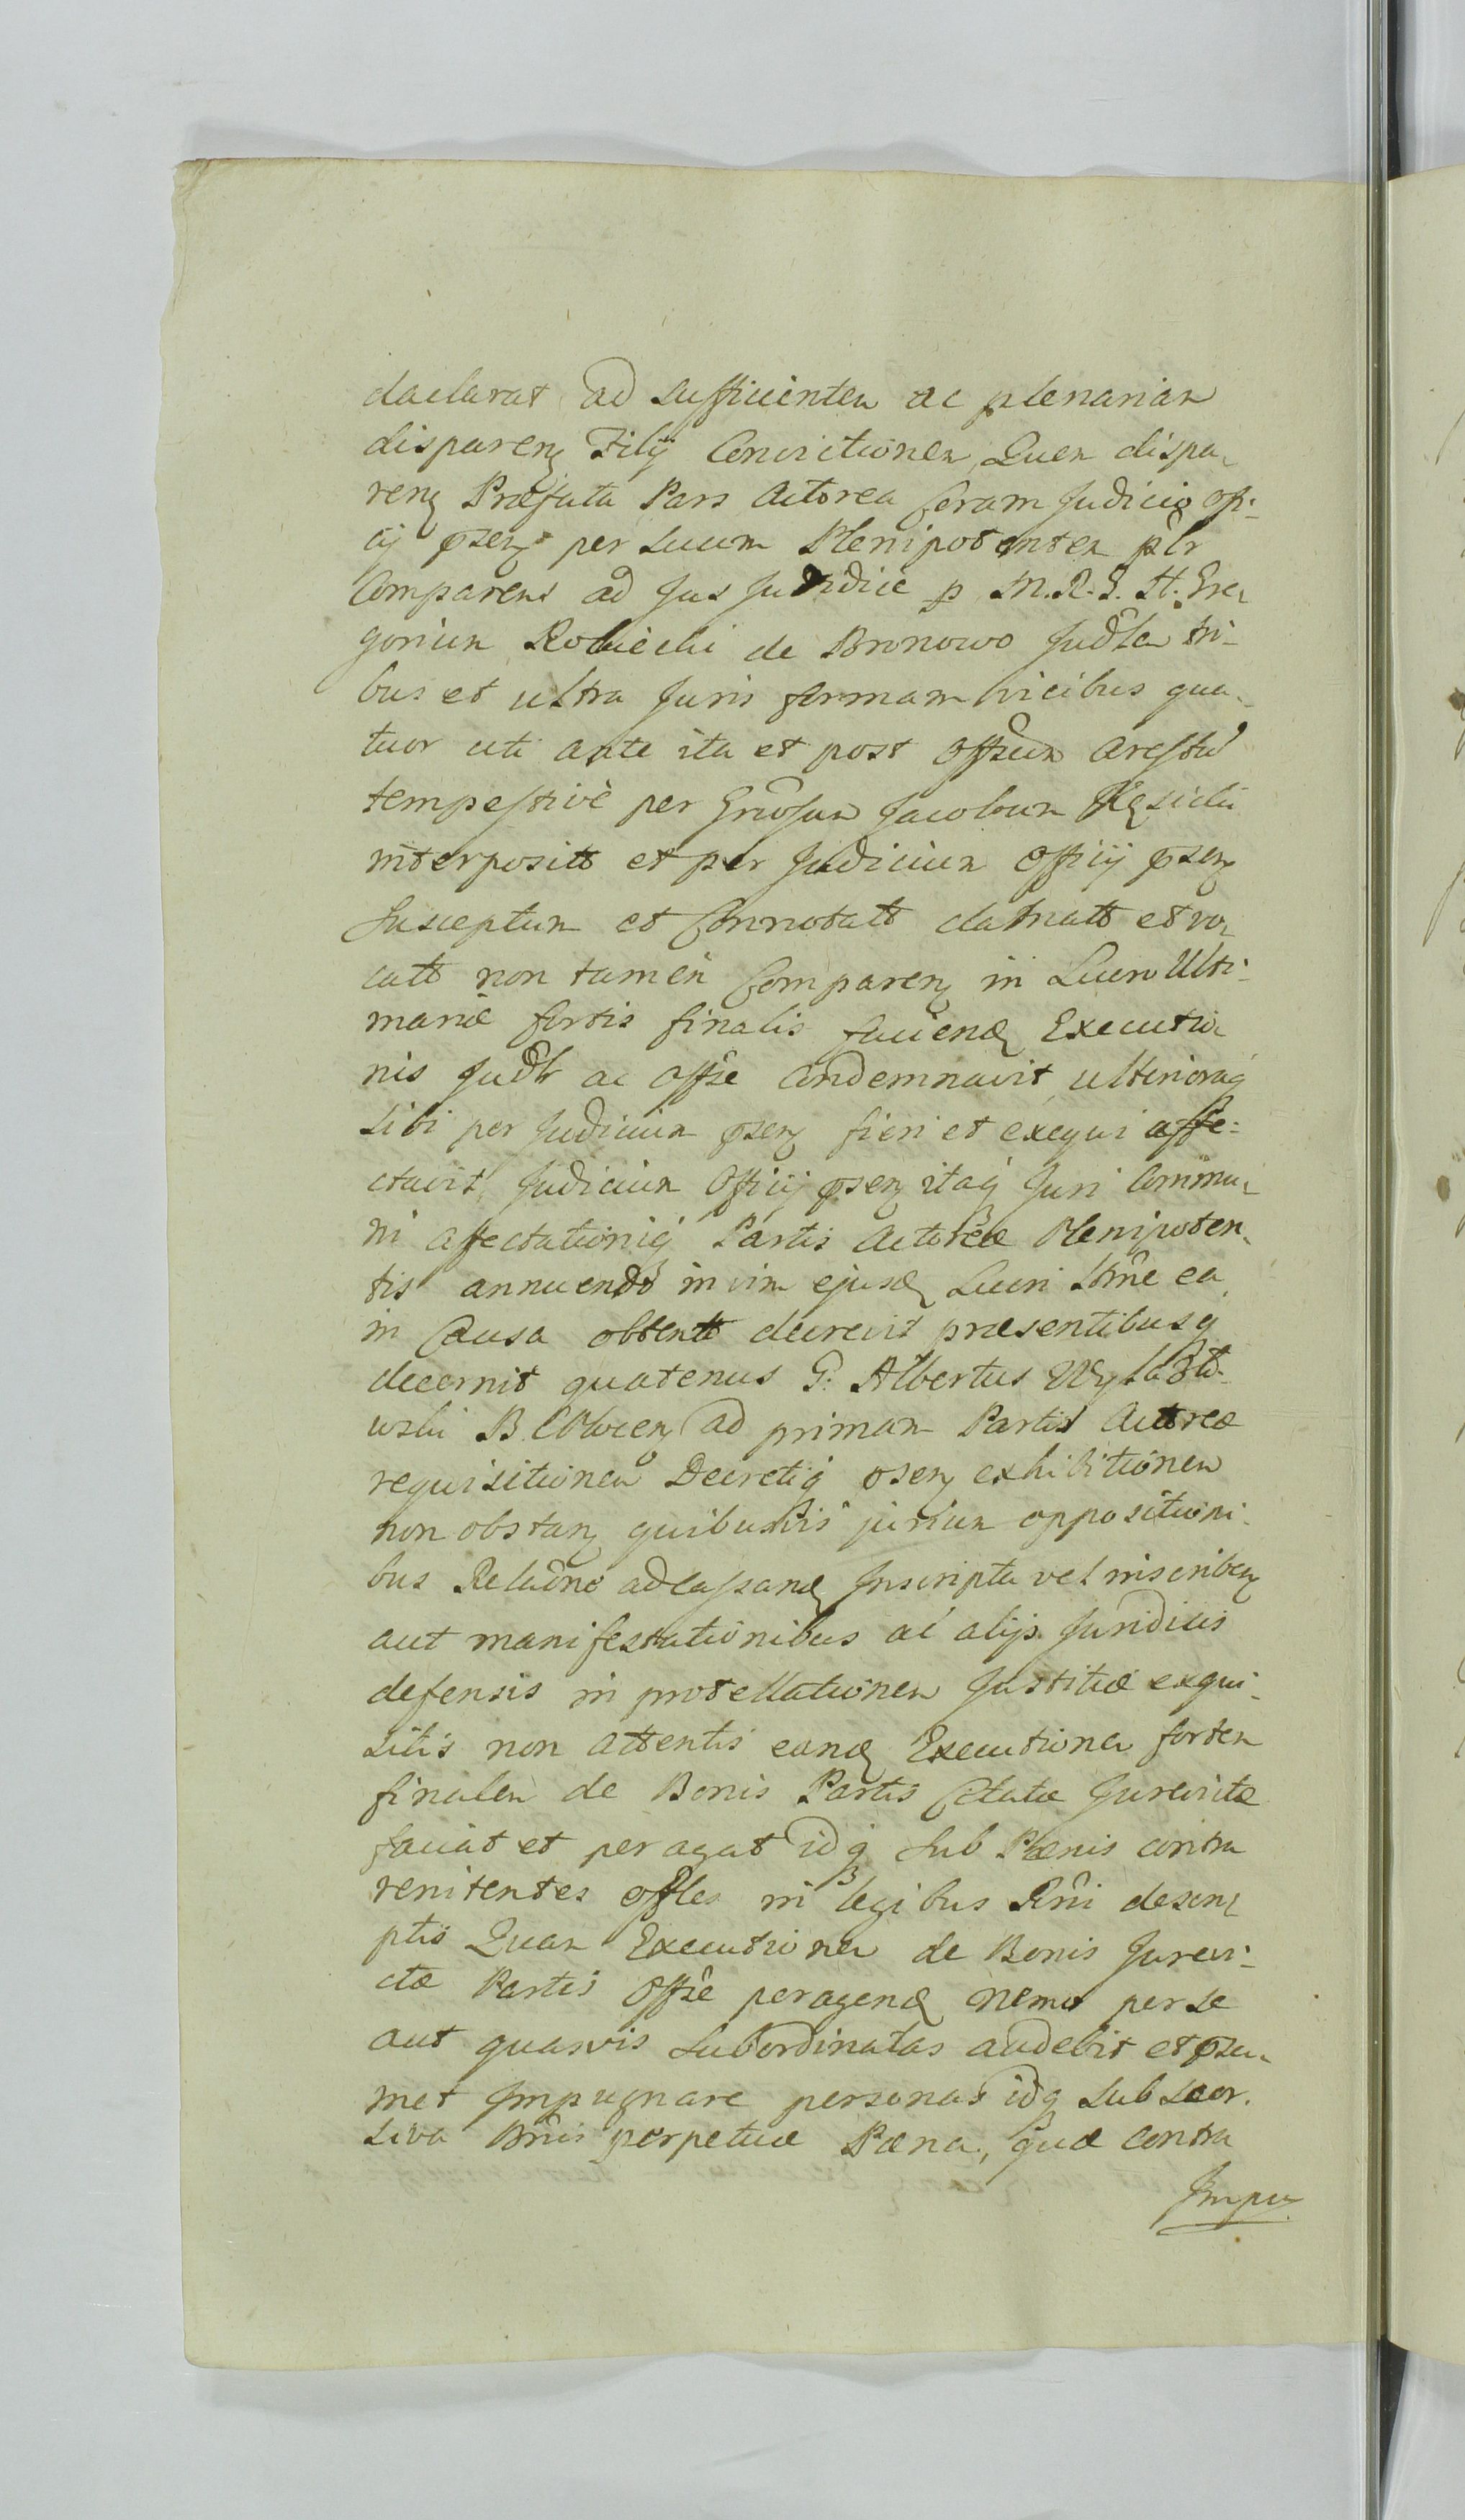 daclarat ad sufficientem ac plenariam
disparenȝ Filÿ Convictionem, Quem dispa
renȝ Præfata Pars Actorea Coram Judicio offi:
cÿ pñsenȝ per suum Plenipotentem plr
Comparens ad Jus Juridice p M. R. G. H. Gre
gorium de Bronowo Judlr tri:
bus et ultra Juris formam vicibus qua
tuor uti ante ita et post offsum arestũ
tempestivè per Gnrosum Jacobum
interposittt et per Judicium officÿ pñsenȝ
Susceptum et Connotattt clamattt et vo
cattt non tamen Comparenȝ in Lucro Ulti:
mariæ fortis finalis faciendȝ Executio
nis Judlr ac offse Condemnavit, ulteriorąȝ
sibi per Judicium pñsenȝ fieri et exequi affe:
ctavit, Judicium Officÿ pñsenȝ itaqȝ Juri Commu
ni affectationiqȝ Partis Actoreæ Plenipoten
tis annuendo in vim ejusdȝ Lucri ltime ea
in Causa obtenttt decrevit præsentibusqȝ
decernit quatenus G: Albertus
wski B. C. ad primam Partis Actoreæ
requisitionem Decretiqȝ pñsenȝ exhibitionem
non obstanȝ quibusvis jurium oppositioni:
bus Relaõne ad cassandȝ Inscripta vel inscribenȝ
aut manifestationibus ac alÿs Juridicis
defensis in protellationem Justitiæ exqui
sitis non attentis eandȝ Executionem fortem
finalem de Bonis Partis Citatæ Jurevictæ
faciat et peragat idqȝ sub Pænis contra
renitentes offles in legibus Rñi descri
ptis Quam Executionem de Bonis Jurevi:
ctæ Partis Offse peragendȝ nemo per se
aut quasvis subordinatas audebit et pñsu
met Impugnare personas idqȝ sub
siva Bñis perpetuæ Pæna, quæ contra
Impu